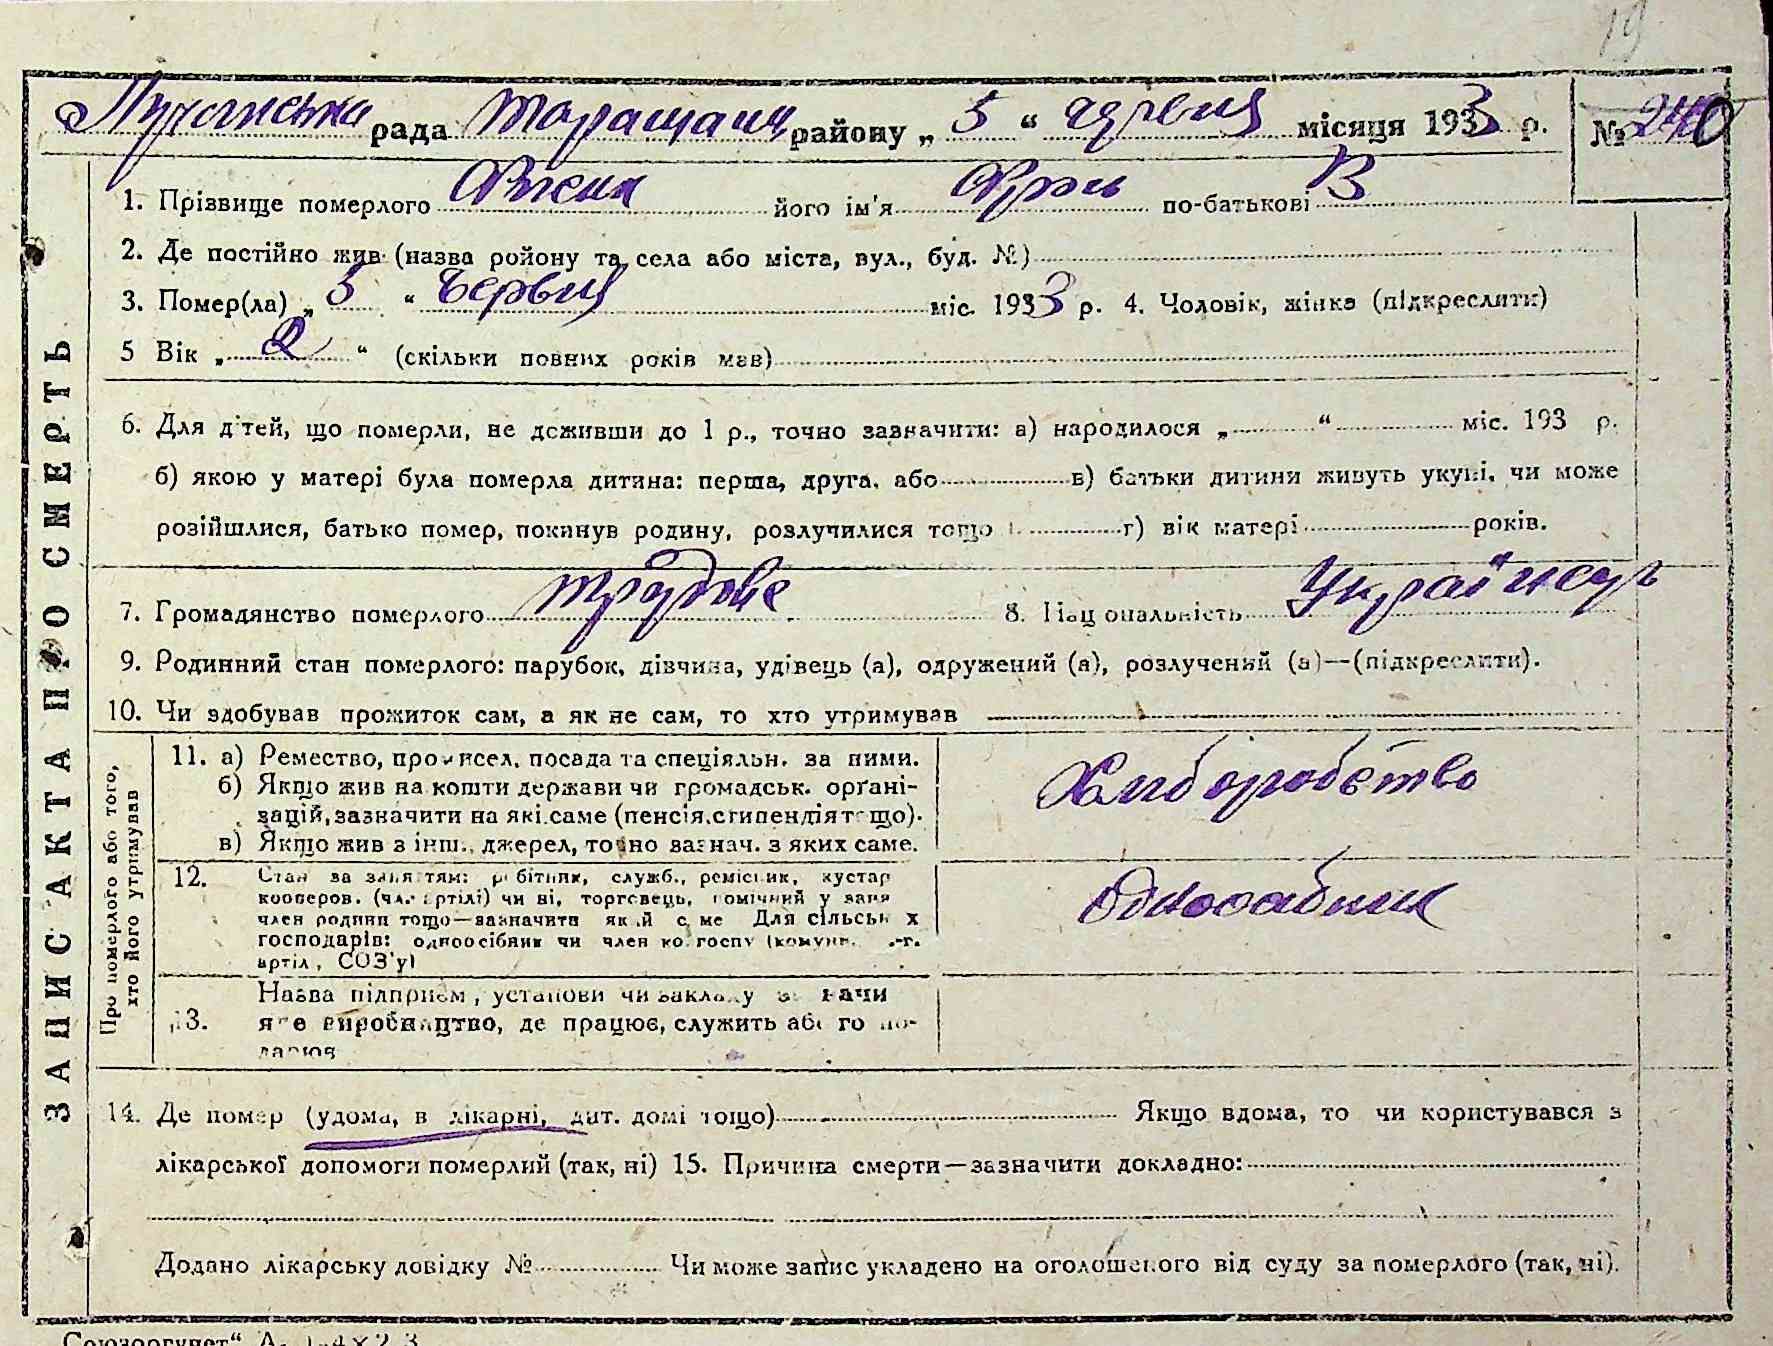 19
Лучанська рада Таращанн району „ 5 “ червня місяця 1933 р. № 240
1. Прізвище померлого його ім'я по-батькові В
2. Де постійно жив (назва ройону та села або міста, вул., буд. №)
3. Помер(ла) „ 5 “ Червня міс. 1933 р. 4. Чоловік, жінка (підкреслити)
5 Вік „ 2 “ (скільки повних років мав)
6. Для дітей, що померли, не доживши до 1 р., точно зазначити: а) народилося „ “ міс. 193 р.
б) якою у матері була померла дитина: перша, друга, або в) батьки дитини живуть укупі, чи може
розійшлися, батько помер, покинув родину, розлучилися тощо г) вік матері років.
7. Громадянство померлого трудове 8. Національність Українець
9. Родинний стан померлого: парубок, дівчина, удівець (а), одружений (а), розлучений (а)—(підкреслити).
10. Чи здобував прожиток сам, а як не сам, то хто утримував
ЗАПИС АКТА ПРО СМЕРТЬ
Про померлого або того, хто його утримував
11. а) Ремество, промисел, посада та спеціяльн. за ними.
б) Якщо жив на кошти держави чи громадськ. орґані-
зацій, зазначити на які саме (пенсія, стипендія тощо).
в) Якщо жив з інш. джерел, точно зазнач. з яких саме.
Хліборобство
12. Стан за заняттям: робітник, служб., ремісник, кустар
кооперов. (чл. артілі) чи ні, торговець, помічний у заня
член родини тощо—зазначити який саме Для сільських
господарів: одноосібник чи член колгоспу (комуни, с.-г.
артіл, СОЗ'у)
Одноосібник
13. Назва підприєм, установи чи закладу зазначи
яке виробництво, де працює, служить або го по-
дарює
14. Де помер (удома, в лікарні, дит. домі тощо) Якщо вдома, то чи користувався з
лікарської допомоги померлий (так, ні) 15. Причина смерти—зазначити докладно:
Додано лікарську довідку № Чи може запис укладено на оголошеного від суду за померлого (так, ні).